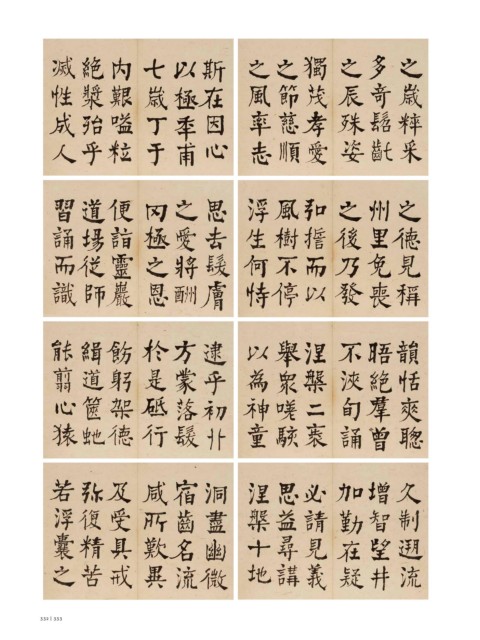 之歲粹采
多奇髫齓
之辰殊姿
獨茂孝愛
之節慈順
之風率志
斯在因心
以極秊甫
七歲丁于
内艱嗌粒
絕漿殆乎
滅性成人
之德見稱
州里免喪
之後乃發
弘擔而以
風樹不停
浮生何恃
思去髮膚
之愛將酬
罔極之恩
便詣靈巖
道場從師
習誦而識
韻恬爽聰
晤絕羣曾
不浹旬誦
涅槃二袠
舉衆嗟駭
以為神童
逮乎初丱
方蒙落髮
於是砥行
飭躬架德
緝道篋虵
能翦心猿
久制遡流
增智望井
加勤在疑
必請見義
思益尋講
涅槃十地
洞盡幽微
宿齒名流
咸所歎異
及受具戒
弥復精苦
若浮囊之